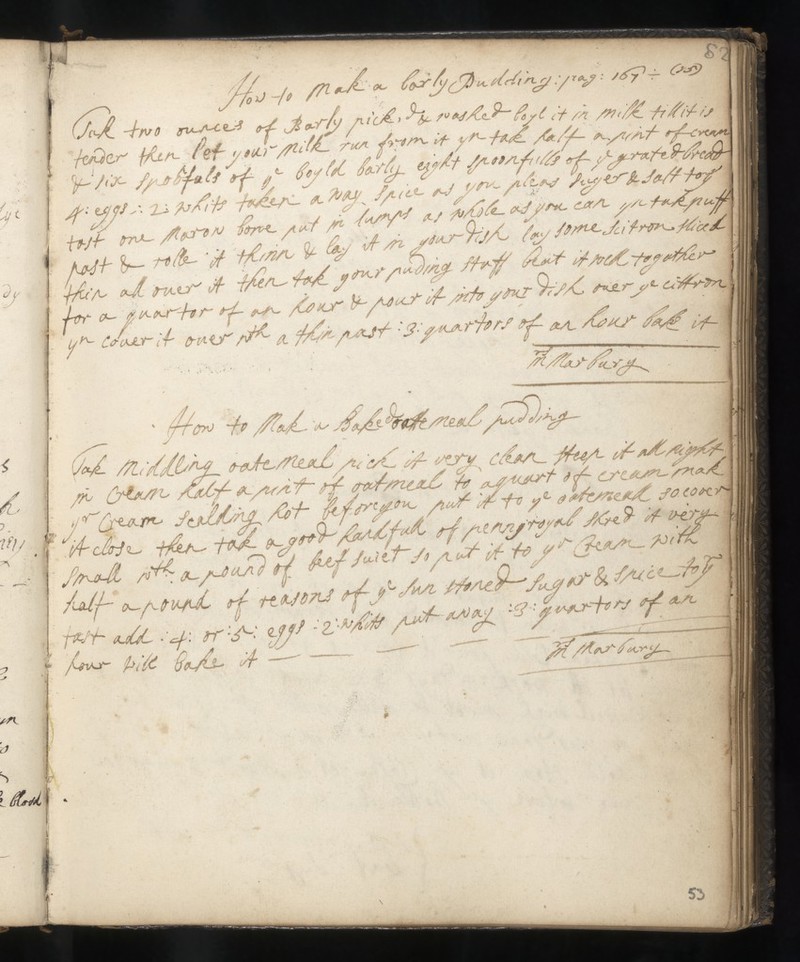 82
How to Mak a barly Pudding: pag: 167 ÷ (25)
Tak two ounces of Barly pick,d & washed boyl it in milk till it is
tender then let your milk run from it yn tak half a pint of cream
& six spoonfuls of ye boyld barly eight spoonfulls of ye grated bread
4: eggs : 2: whits taken away spice as you pleas suger & salt to yr
tast one marow bone put in lumps as whole as you can yn tak puff
past & rolle it thinn & lay it in your dish lay some scitron sliced
thin all over it then tak your puding stuff beat it well together
for a quartor of an hour & pour it into your dish over ye cittron
yn cover it over wth a thin past :3: quartors of an hour bake it
Marbury
How to Mak a Baked oatemeal pudding
Tak middling oatemeal pick it very clean steep it all night
in Cream half a pint of oatmeal to a quart of cream mak
yr Cream scalding hot before you put it to ye oatemeall so cover
it close then tak a good handfull of pennyroyal shred it very
small wth a pound of beef suiet so put it to yr Cream with
half a pound of reasons of ye sun stoned sugar & spice to yr
tast add :4: or :5: eggs :2: whits put away :3: quartors of an
hour will bake it
Marbury
53
blood